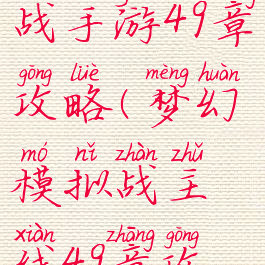 战手游49章
gōng lüè mèng huàn
攻略(梦幻
mó nǐ zhàn zhǔ
模拟战主
xiàn zhāng gōng
线49章攻